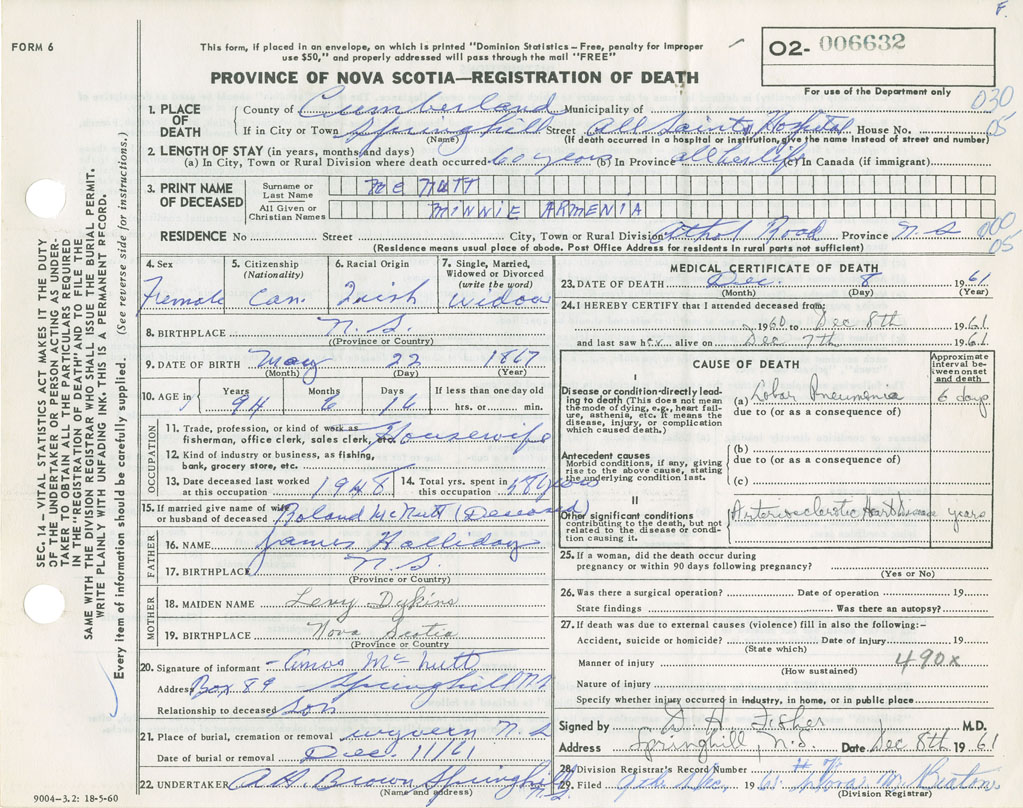 F.
FORM 6
This form, if placed in an envelope, on which is printed "Dominion Statistics—Free, penalty for improper
use $50," and properly addressed will pass through the mail "FREE"
O2- 006632
For use of the Department only
PROVINCE OF NOVA SCOTIA—REGISTRATION OF DEATH
030
05
1. PLACE OF DEATH
County of Cumberland Municipality of
If in City or Town Springhill Street All Saints Hospital House No.
(Name) (If death occurred in a hospital or institution, give the name instead of street and number)
2. LENGTH OF STAY (in years, months, and days)
(a) In City, Town or Rural Division where death occurred 60 years (b) In Province all her life (c) in Canada (if immigrant)
3. PRINT NAME OF DECEASED
Surname or Last Name Mc NUTT
All Given or Christian Names MINNIE ARMENIA
RESIDENCE No Street City, Town or Rural Division Athol Road Province N.S
000
05
(Residence means usual place of abode. Post Office Address for residents in rural parts not sufficient)
4. Sex Female
5. Citizenship (Nationality) Can.
6. Racial Origin Irish
7. Single, Married, Widowed or Divorced (write the word) Widow
8. BIRTHPLACE N.S.
(Province or Country)
9. DATE OF BIRTH May 22 1867
(Month) (Day) (Year)
10. AGE in Years 94 Months 6 Days 16 If less than one day old hrs. or min.
OCCUPATION
11. Trade, profession, or kind of work as fisherman, office clerk, sales clerk, etc. Housewife
12. Kind of industry or business, as fishing, bank, grocery store, etc.
13. Date deceased last worked at this occupation 1948
14. Total yrs. spent in this occupation 58 years
15. If married give name of wife or husband of deceased Roland McNutt (Deceased)
FATHER
16. NAME James Halliday
17. BIRTHPLACE N.S.
(Province or Country)
MOTHER
18. MAIDEN NAME Levy Dykins
19. BIRTHPLACE Nova Scotia
(Province or Country)
20. Signature of informant Amos McNutt
Address Box 89 Springhill N.S
Relationship to deceased Son
21. Place of burial, cremation or removal Wyvern N.S
Date of burial or removal Dec 11/61
22. UNDERTAKER A.H. Brown Springhill N.S.
(Name and address)
9004—3.2: 18-5-60
MEDICAL CERTIFICATE OF DEATH
23. DATE OF DEATH Dec. 8 1961
(Month) (Day) (Year)
24. I HEREBY CERTIFY that I attended deceased from:
1960 to Dec 8th 1961
and last saw her alive on Dec 7th 1961
CAUSE OF DEATH
Approximate interval between onset and death
I
Disease or condition directly leading to death (This does not mean the mode of dying, e.g., heart failure, asthenia, etc. It means the disease, injury, or complication which caused death.)
(a) Lobar Pneumonia 6 days
due to (or as a consequence of)
Antecedent causes
Morbid conditions, if any, giving rise to the above cause, stating the underlying condition last.
(b)
due to (or as a consequence of)
(c)
II
Other significant conditions
contributing to the death, but not related to the disease or condition causing it.
Arteriosclerotic Heart Disease years
25. If a woman, did the death occur during pregnancy or within 90 days following pregnancy?
(Yes or No)
26. Was there a surgical operation? Date of operation 19
State findings Was there an autopsy?
27. If death was due to external causes (violence) fill in also the following:—
Accident, suicide or homicide? Date of injury 19
(State which)
Manner of injury 490x
(How sustained)
Nature of injury
Specify whether injury occurred in industry, in home, or in public place
Signed by D. H. Fisher M.D.
Address Springhill, N.S. Date Dec 8th 1961
28. Division Registrar's Record Number
29. Filed 19 61
(Division Registrar)
SEC. 14—VITAL STATISTICS ACT MAKES IT THE DUTY
OF THE UNDERTAKER OR PERSON ACTING AS UNDER-
TAKER TO OBTAIN ALL THE PARTICULARS REQUIRED
IN THE "REGISTRATION OF DEATH" AND TO FILE THE
SAME WITH THE DIVISION REGISTRAR WHO SHALL ISSUE THE BURIAL PERMIT.
WRITE PLAINLY WITH UNFADING INK. THIS IS A PERMANENT RECORD.
Every item of information should be carefully supplied. (See reverse side for instructions.)